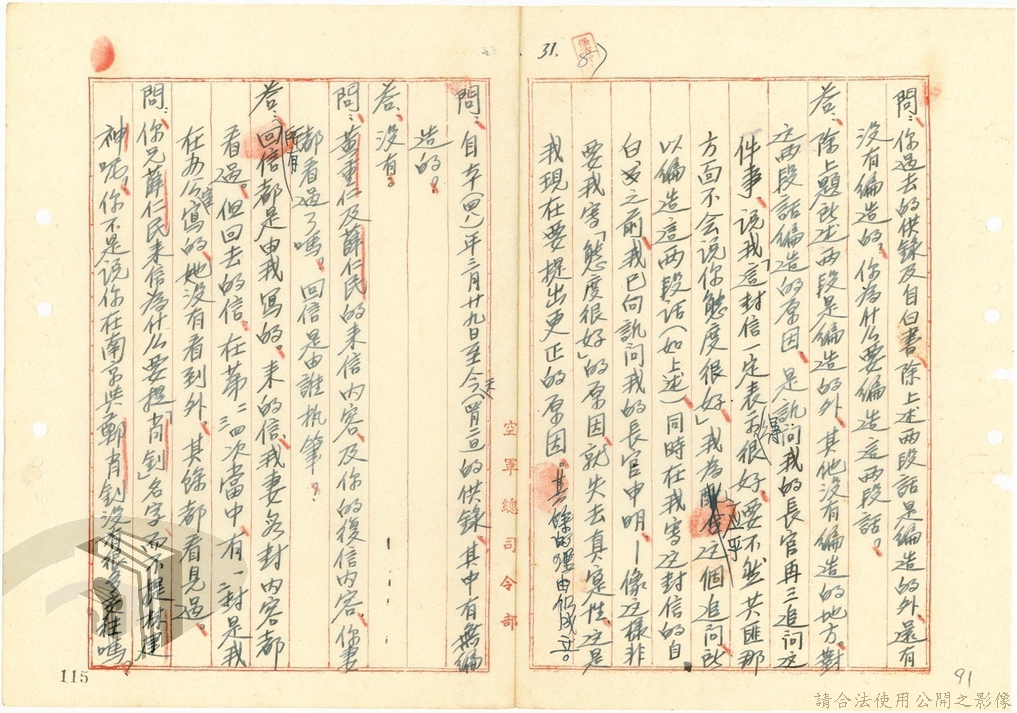 31.
問：你過去的供錄及自白書、除上述兩段話是編造的外、還有
沒有編造的、你為什么要編造這两段話。
答：除上題所述两段是編造的外、其他沒有編造的地方。對
这两段話編造的原因、是訊问我的長官再三追问这
件事、说我「這封信一定表示得很好、要不然共匪那
方面不会说你態度很好」我為 这個追问所
以編造這两段话(如上述)同時在我寫这封信的自
白 之前、我已向訊问我的長官申明、—像这樣非
要我寫「態度很好」的原因、就失去真实性。这是
我現在要提出更正的原因。其餘的理由仍成立。
問：自本(四八)年三月廿九日至今 的供錄、其中有無編
造的。
答：没有。
問：黃重仁及薛仁民的来信内容、及你的復信内容、你妻
都看過了嗎。回信是由誰执筆。
答：回信都是由我寫的。来的信、我妻每封内容都
看過。但所有回去的信、在第二三四次當中、有一二封是我
在办公室寫的她沒有看到外、其餘都看見過。
問：你兄薛仁民来信為什么要提「肖釗」名字而不提林建
神呢、你不是说你在南京與鄭肖釗沒有很多来往嗎。
空軍總司令部
115
91
請合法使用公開之影像